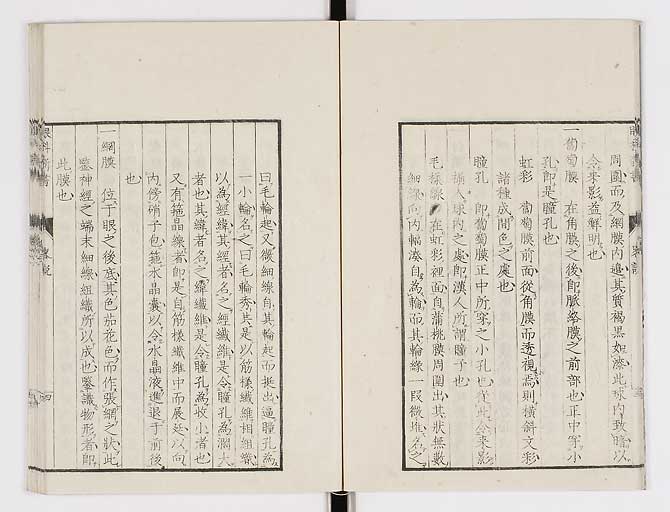 周圍而及網膜內邊其質褐黑如漆此球內致瞻以
令來影益鮮明也
一葡萄膜 在角膜之後即脈絡膜之前部也正中穿小
孔即是瞳孔也
虹彩 葡萄膜前面從角膜而透視焉則橫斜文彩
諸種成間色之處也
瞳孔 即葡萄膜正中所穿之小孔也從此令來影
稱入球內之處即漢人所謂瞳子也
毛樣線 在虹彩裡面自蒲桃膜周圍出其狀無數
細線向內輻湊自為輪而其輪緣一段微堆名之
曰毛輪起又微細線自其輪起而挺出逼瞳孔為
一小輪名之曰毛輪秀共是以筋樣纖維相組織
以為經緯其經者名之經纖維是令瞳孔為濶大
者也其緯者名之緯纖維是令瞳孔為收小者也
又有箍晶線者即是自筋樣纖維中而展延以向
內傍硝子包箍水晶囊以令水晶液進退于前後
也
一網膜 位于眼之後底其色茄花色而作張網之狀此
鑒神經之端末細線組織所以成也鑒識物形者即
此膜也
眼科新書
四